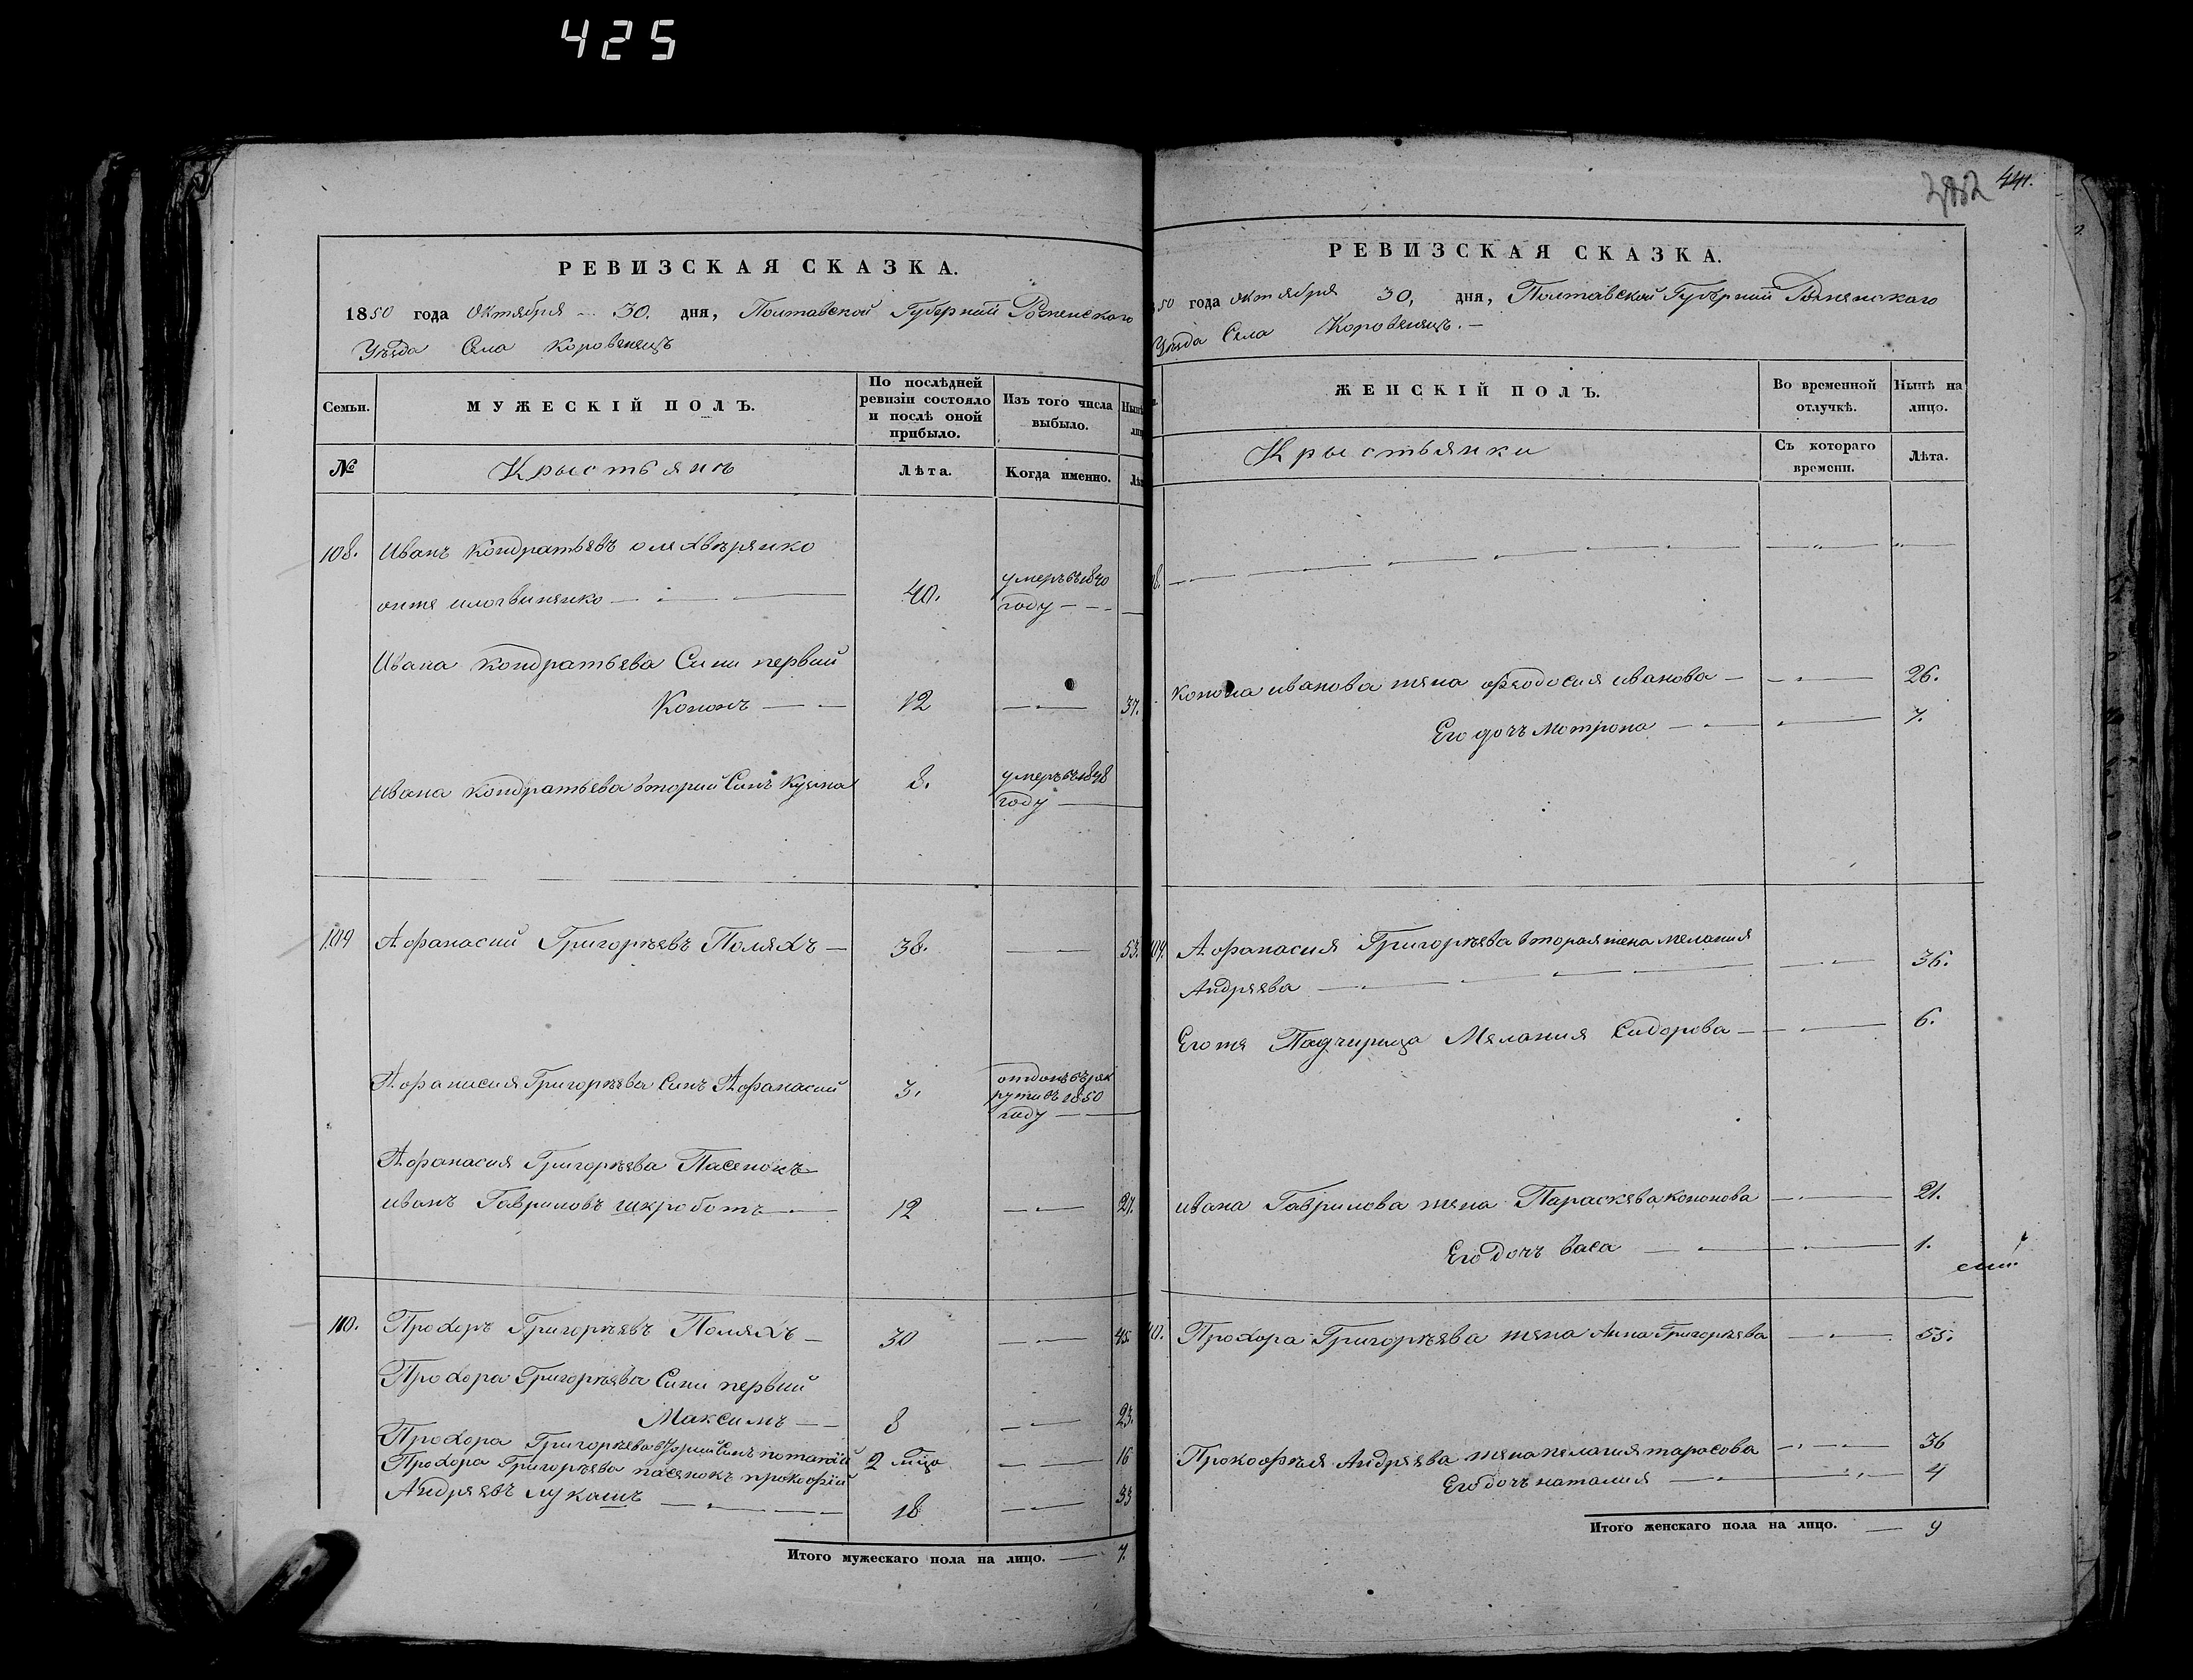 425
РЕВИЗСКАЯ СКАЗКА.
1850 года Октября 30. дня, Полтавской Губернии Роменского
Уезда Села Коровенецъ
Семьи.
МУЖЕСКІЙ ПОЛЪ.
По послѣдней ревизіи состояло и послѣ оной прибыло.
Изъ того числа выбыло.
№
Крыстьянъ
Лѣта.
Когда именно.
108. Иванъ Кондратьевъ
онже 40. умеръ въ 1840
году
Ивана Кондратьева Сини первий
Кононъ 12 37.
Ивана Кондратьева вторий Синъ Кузма 8. умеръ въ 1848
году
109 Афанасий Григорьевъ Поляхъ 38. 53.
Афанасия Григорьева Синъ Афанасий 3. отдонъ въ рек
рути въ 1850
году
Афанасия Григорьева Пасенокъ
иванъ Гавриловъ шкроботъ 12 27.
110. Прохоръ Григорьевъ Поляхъ 30 45.
Прохора Григорьева Сини первий
Максимъ 8 23.
Прохора Григорьева вторий Синъ потапий 16
Прохора Григорьева пасенокъ прокофий
Андреевъ лукашъ 18 33
Итого мужескаго пола на лицо. 7.
282 441.
РЕВИЗСКАЯ СКАЗКА.
50 года Октября 30, дня, Полтавской Губернии Роменского
Уезда Села Коровенецъ.
ЖЕНСКІЙ ПОЛЪ.
Во временной отлучкѣ.
Нынѣ на лицо.
Крыстьянки
Съ котораго времени.
Лѣта.
Конона иванова жена феодосия иванова 26.
Его дочъ мотрона 7.
Афанасия Григорьева вторая жена мелания
Андреева 36.
Егоже Падчерица Мелания Сидорова 6.
ивана Гаврилова жена Параскева кононова 21.
Его дочъ васа 1.
Прохора Григорьева жена Анна Григорьева 55.
Прокофия Андреева жена пелагия тарасова 36
Его дочъ наталия 4
Итого женскаго пола на лицо. 9